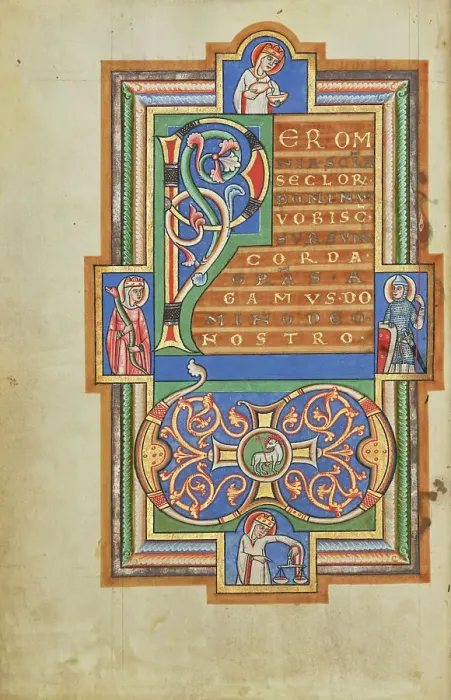 PEROM
NIA SCLA
SECLOR·
DOMINV
VOBISC·
SVRSVM
CORDA·
GRAS·A
GAMVS·DO
MINO·DEO
NOSTRO·